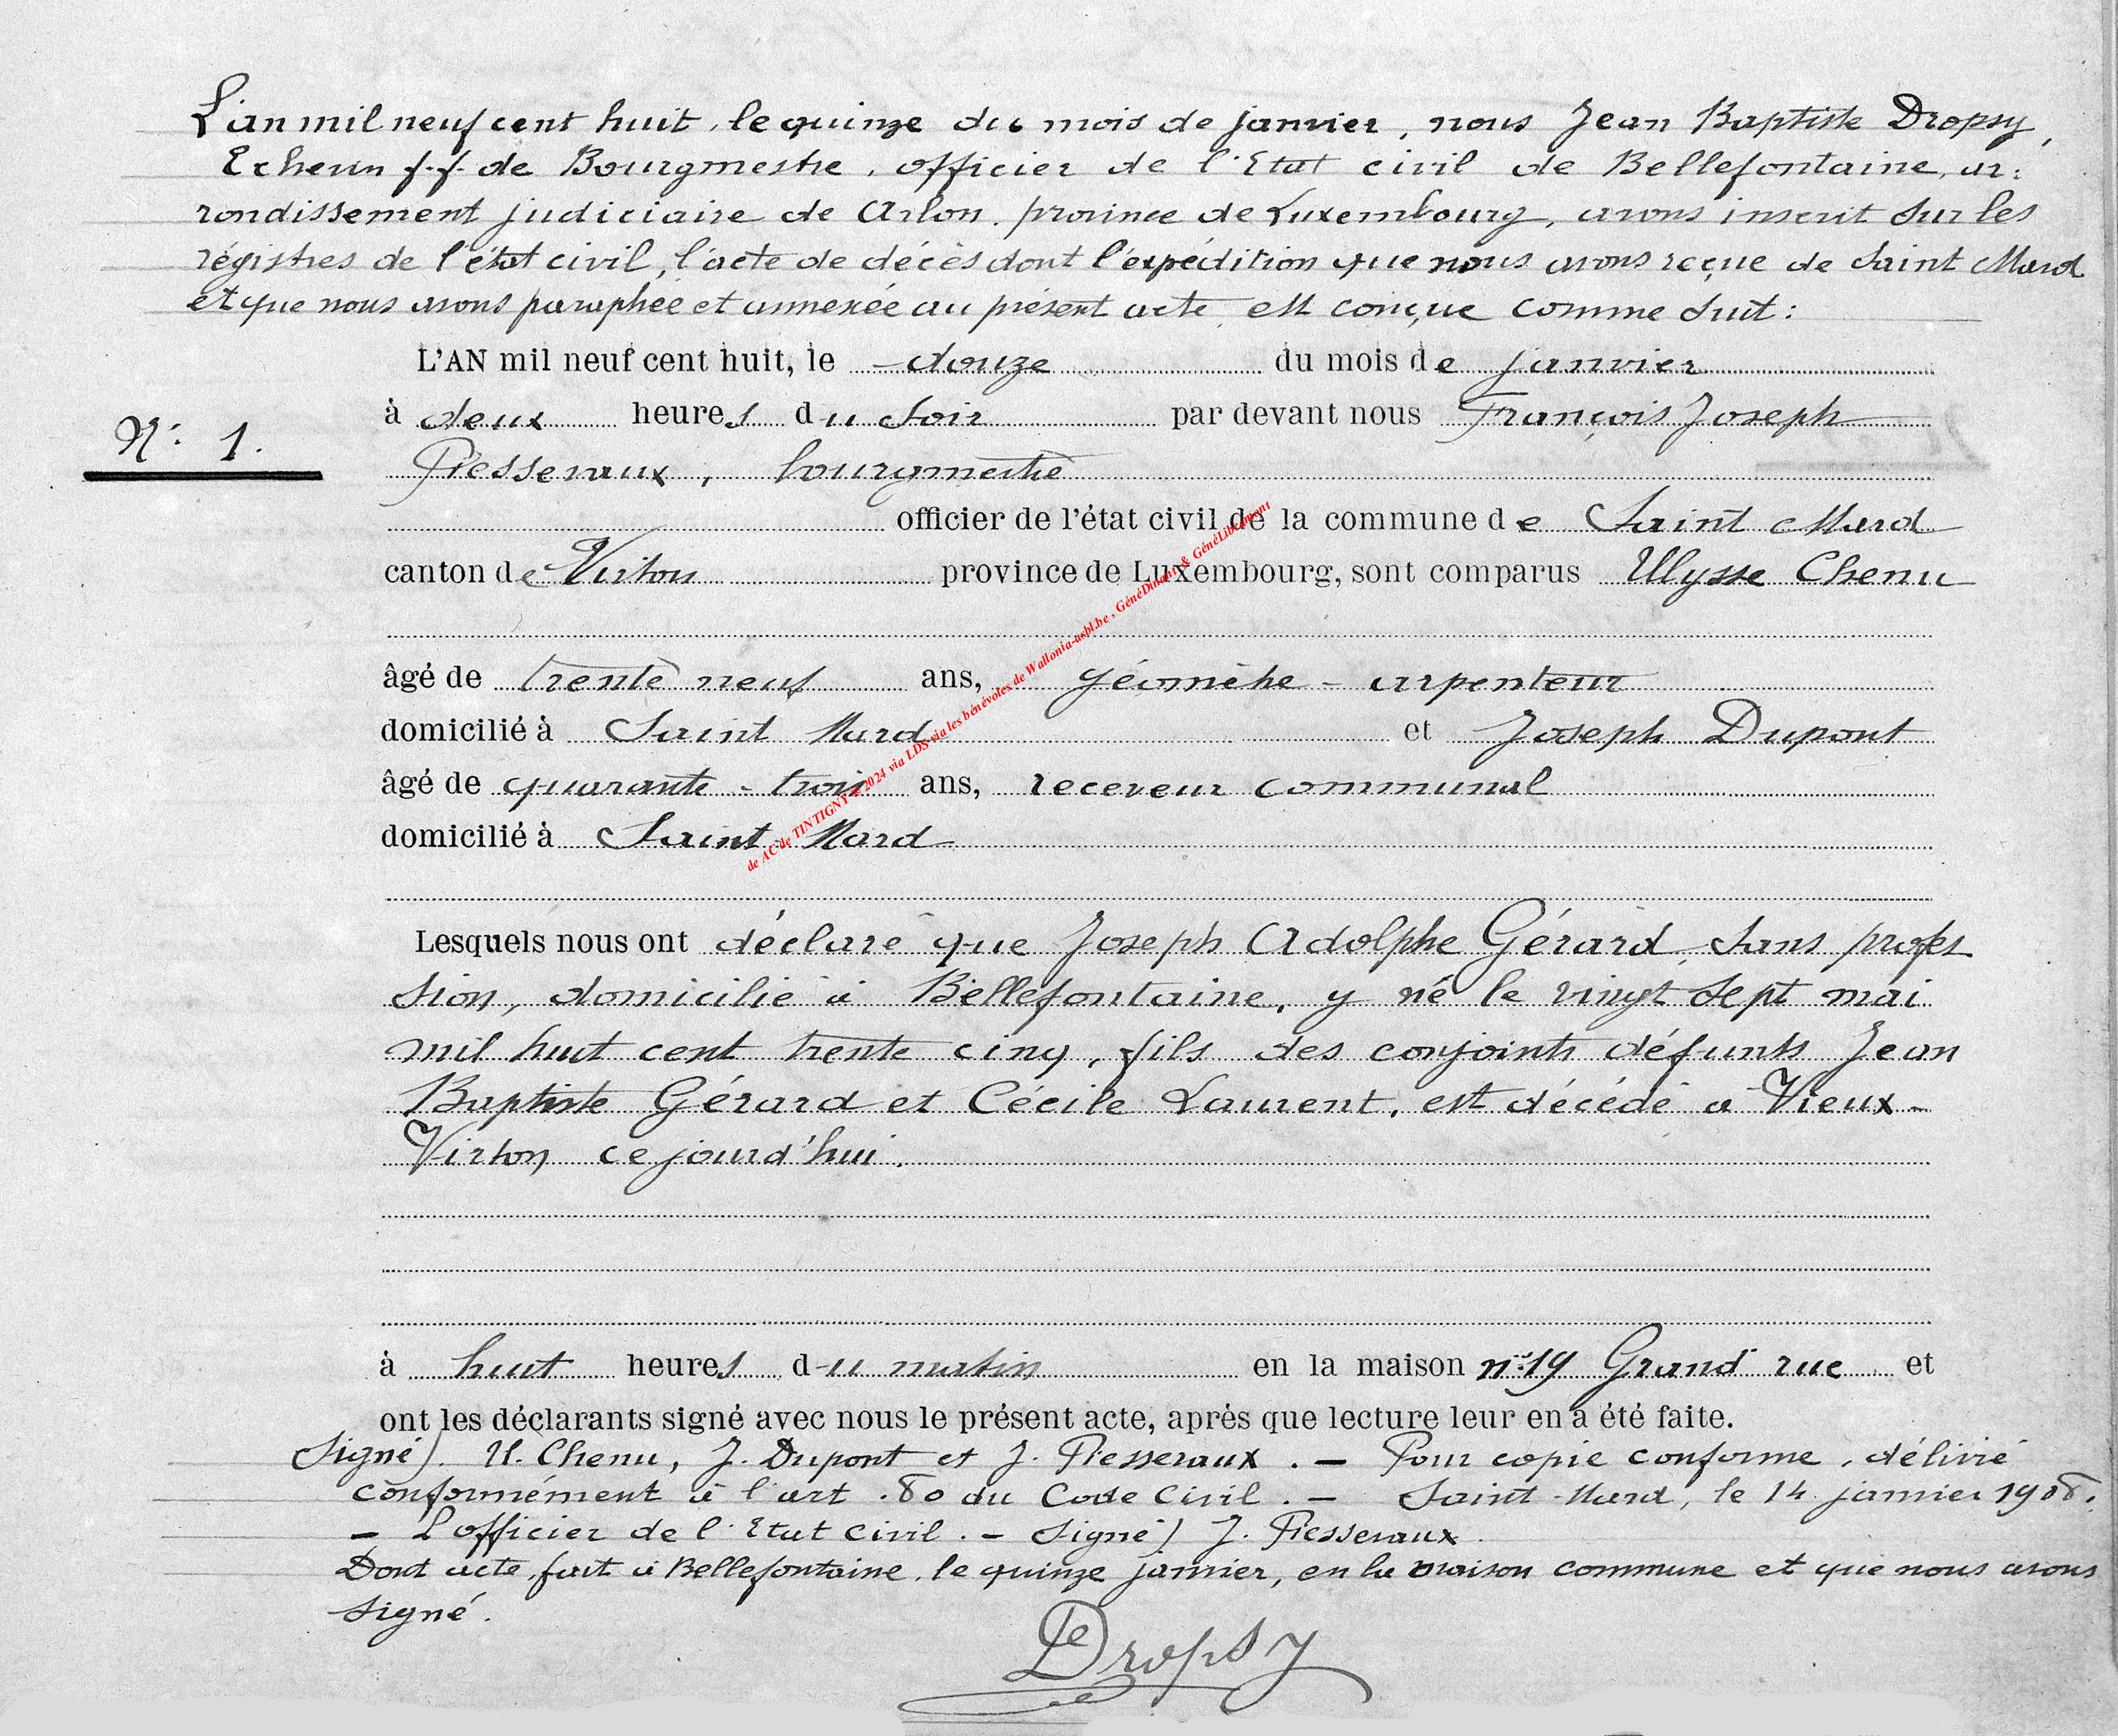 L'an mil neuf cent huit, le quinze du mois de janvier, nous Jean Baptiste Dropsy,
Echevin f.f. de Bourgmestre, officier de l'Etat civil de Bellefontaine, ar:
rondissement judiciaire de Arlon, province de Luxembourg, avons inscrit sur les
régistres de l'état civil, l'acte de décès dont l'expédition que nous avons reçue de Saint Mard
et que nous avons paraphée et annexée au présent acte, est conçue comme suit:
L'AN mil neuf cent huit, le douze du mois de janvier
à deux heures du soir par devant nous François Joseph
N°. 1.
Piesseraux, bourgmestre
officier de l'état civil de la commune de Saint Mard
canton de Virton province de Luxembourg, sont comparus Ulysse Chenu
âgé de trente neuf ans, géomètre - arpenteur
domicilié à Saint Mard et Joseph Dupont
âgé de quarante - trois ans, receveur communal
domicilié à Saint Mard
de AC de TINTIGNY © 2024 via LDS via les bénévoles de Wallonia-asbl.be , GénéDinant & GénéLibramont
Lesquels nous ont déclaré que Joseph Adolphe Gérard, sans profes
sion, domicilié à Bellefontaine, y né le vingt sept mai
mil huit cent trente cinq, fils des conjoints défunts Jean
Baptiste Gérard et Cécile Laurent, est décédé à Vieux-
Virton ce jourd'hui.
à huit heures du matin en la maison n° 19 Grand'rue et
ont les déclarants signé avec nous le présent acte, après que lecture leur en a été faite.
Signé). U. Chenu, J. Dupont et J. Piesseraux. — Pour copie conforme, délivré
conformément à l'art. 80 du Code Civil. — Saint-Mard, le 14 janvier 1908.
— L'officier de l'Etat civil. — Signé) J. Piesseraux.
Dont acte, fait à Bellefontaine, le quinze janvier, en la maison commune et que nous avons
signé.
Dropsy